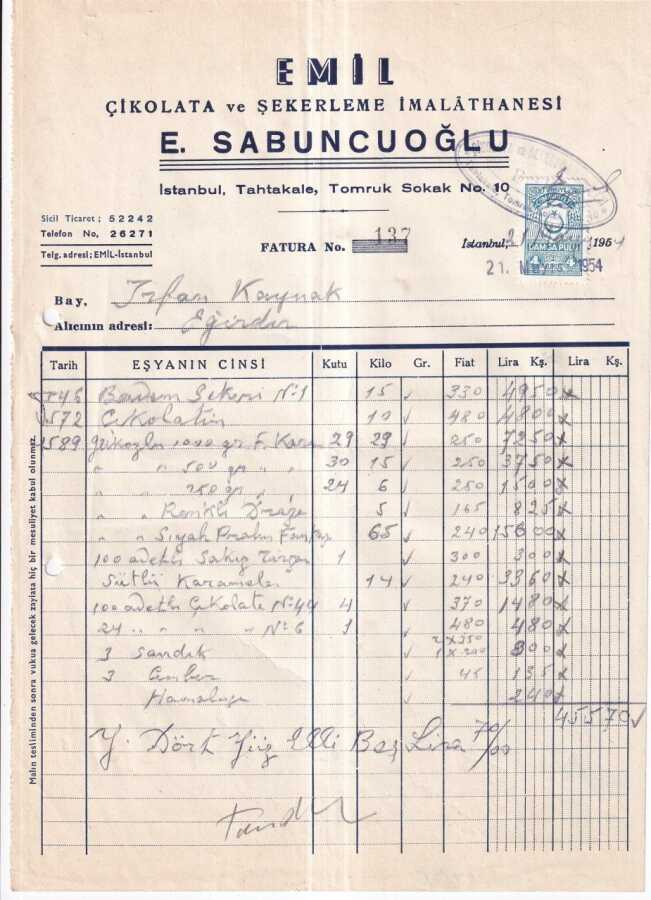 EMİL
ÇİKOLATA ve ŞEKERLEME İMALÂTHANESİ
E. SABUNCUOĞLU
İstanbul, Tahtakale, Tomruk Sokak No. 10
Sicil Ticaret ; 52242
Telefon No, 26271
Telg. adresi; EMİL-İstanbul
FATURA No. 137
İstanbul, 21 Mayıs 1954
DAMGA PULU
21. Mayıs 1954
Bay, İrfan Kaynak
Alıcının adresi: Eğirdir
Tarih EŞYANIN CİNSİ Kutu Kilo Gr. Fiat Lira Kş. Lira Kş.
546 Badem Şekeri No 1 15 330 4950
572 Çikolatin 10 480 4800
589 1000 gr. F. Kara 29 29 250 7250
" " 500 gr " " 30 15 250 3750
" " 250 gr " 24 6 250 1500
" " Renkli Draje 5 165 825
" " Siyah 65 240 15600
100 adetli Sakız 1 300 300
Sütlü Karamela 14 240 3360
100 adetli Çikolata No 44 4 370 1480
24 " " " No 6 1 480 480
3 Sandık 2 x 350 1 x 200 900
3 Çember 45 135
Hamaliye 240
45570
Y. Dört Yüz Elli Beş Lira 70/00
Malın tesliminden sonra vukua gelecek zayiata hiç bir mesuliyet kabul olunmaz.